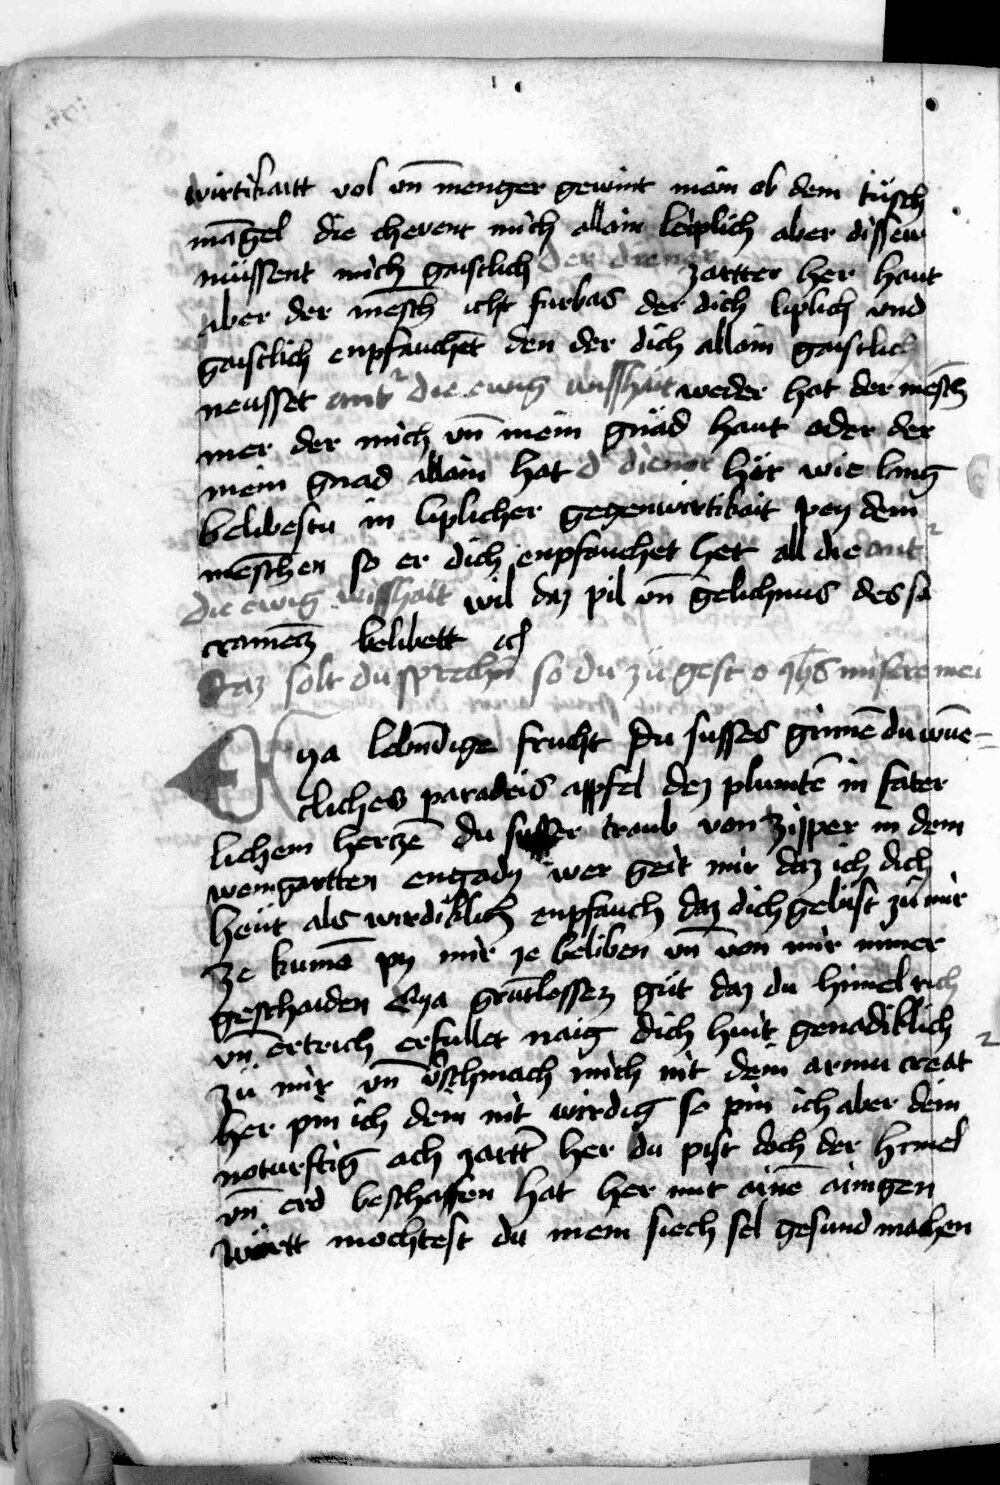 wirtikaitt vol vn̄ menger gewint mein ob dem tüsch
māgel die cherent mich allain leiplich aber dissew
nüssent mich gaistlich der diener zartter her haut
aber der mēsch icht furbas der dich liplich vnd
gaistlich enpfauchet den der dich allain gaistlich
neusset antᵘ die ewig wisshait weder hat der mēsch
mer der mich vn̄ mein gnad haut oder der
mein gnad allain hat d diener her wie lang
belibestu in liplicher gegenwirtikait pey dem
mēschen so er dich enpfauchet het all die ant
die ewig wisshait wil daz pil vn̄ gelichnus des sa
cramētz belibett ich
Daz solt du sprechn̄ so du zü gest o ihs miserere mei
Eya lebndige frucht Du susses gimē du wūe-
cliches paradeis appfel dez plümtē in fater
lichem hertzē du susser traub von zipper in dem
weingartten engady wer geit mir daz ich dich
heüt als wirdiklich enpfauch daz dich gelüst zü mir
ze kumē py mir ze beliben vn̄ von mir nimer
geschaiden Eya grūtlossez güt daz du himelrich
vn̄ ertrich erfullet naig dich huit genadiklich
zü mir vn̄ v̄schmach mich nit dein armu creat
her pin ich dein nit wirdig so pin ich aber dein
noturftig ach zartt her du pist doch der himel
vn̄ erd beschaffen hat her mit ainē ainigen
wortt mochtest du mein siech sel gesund machen